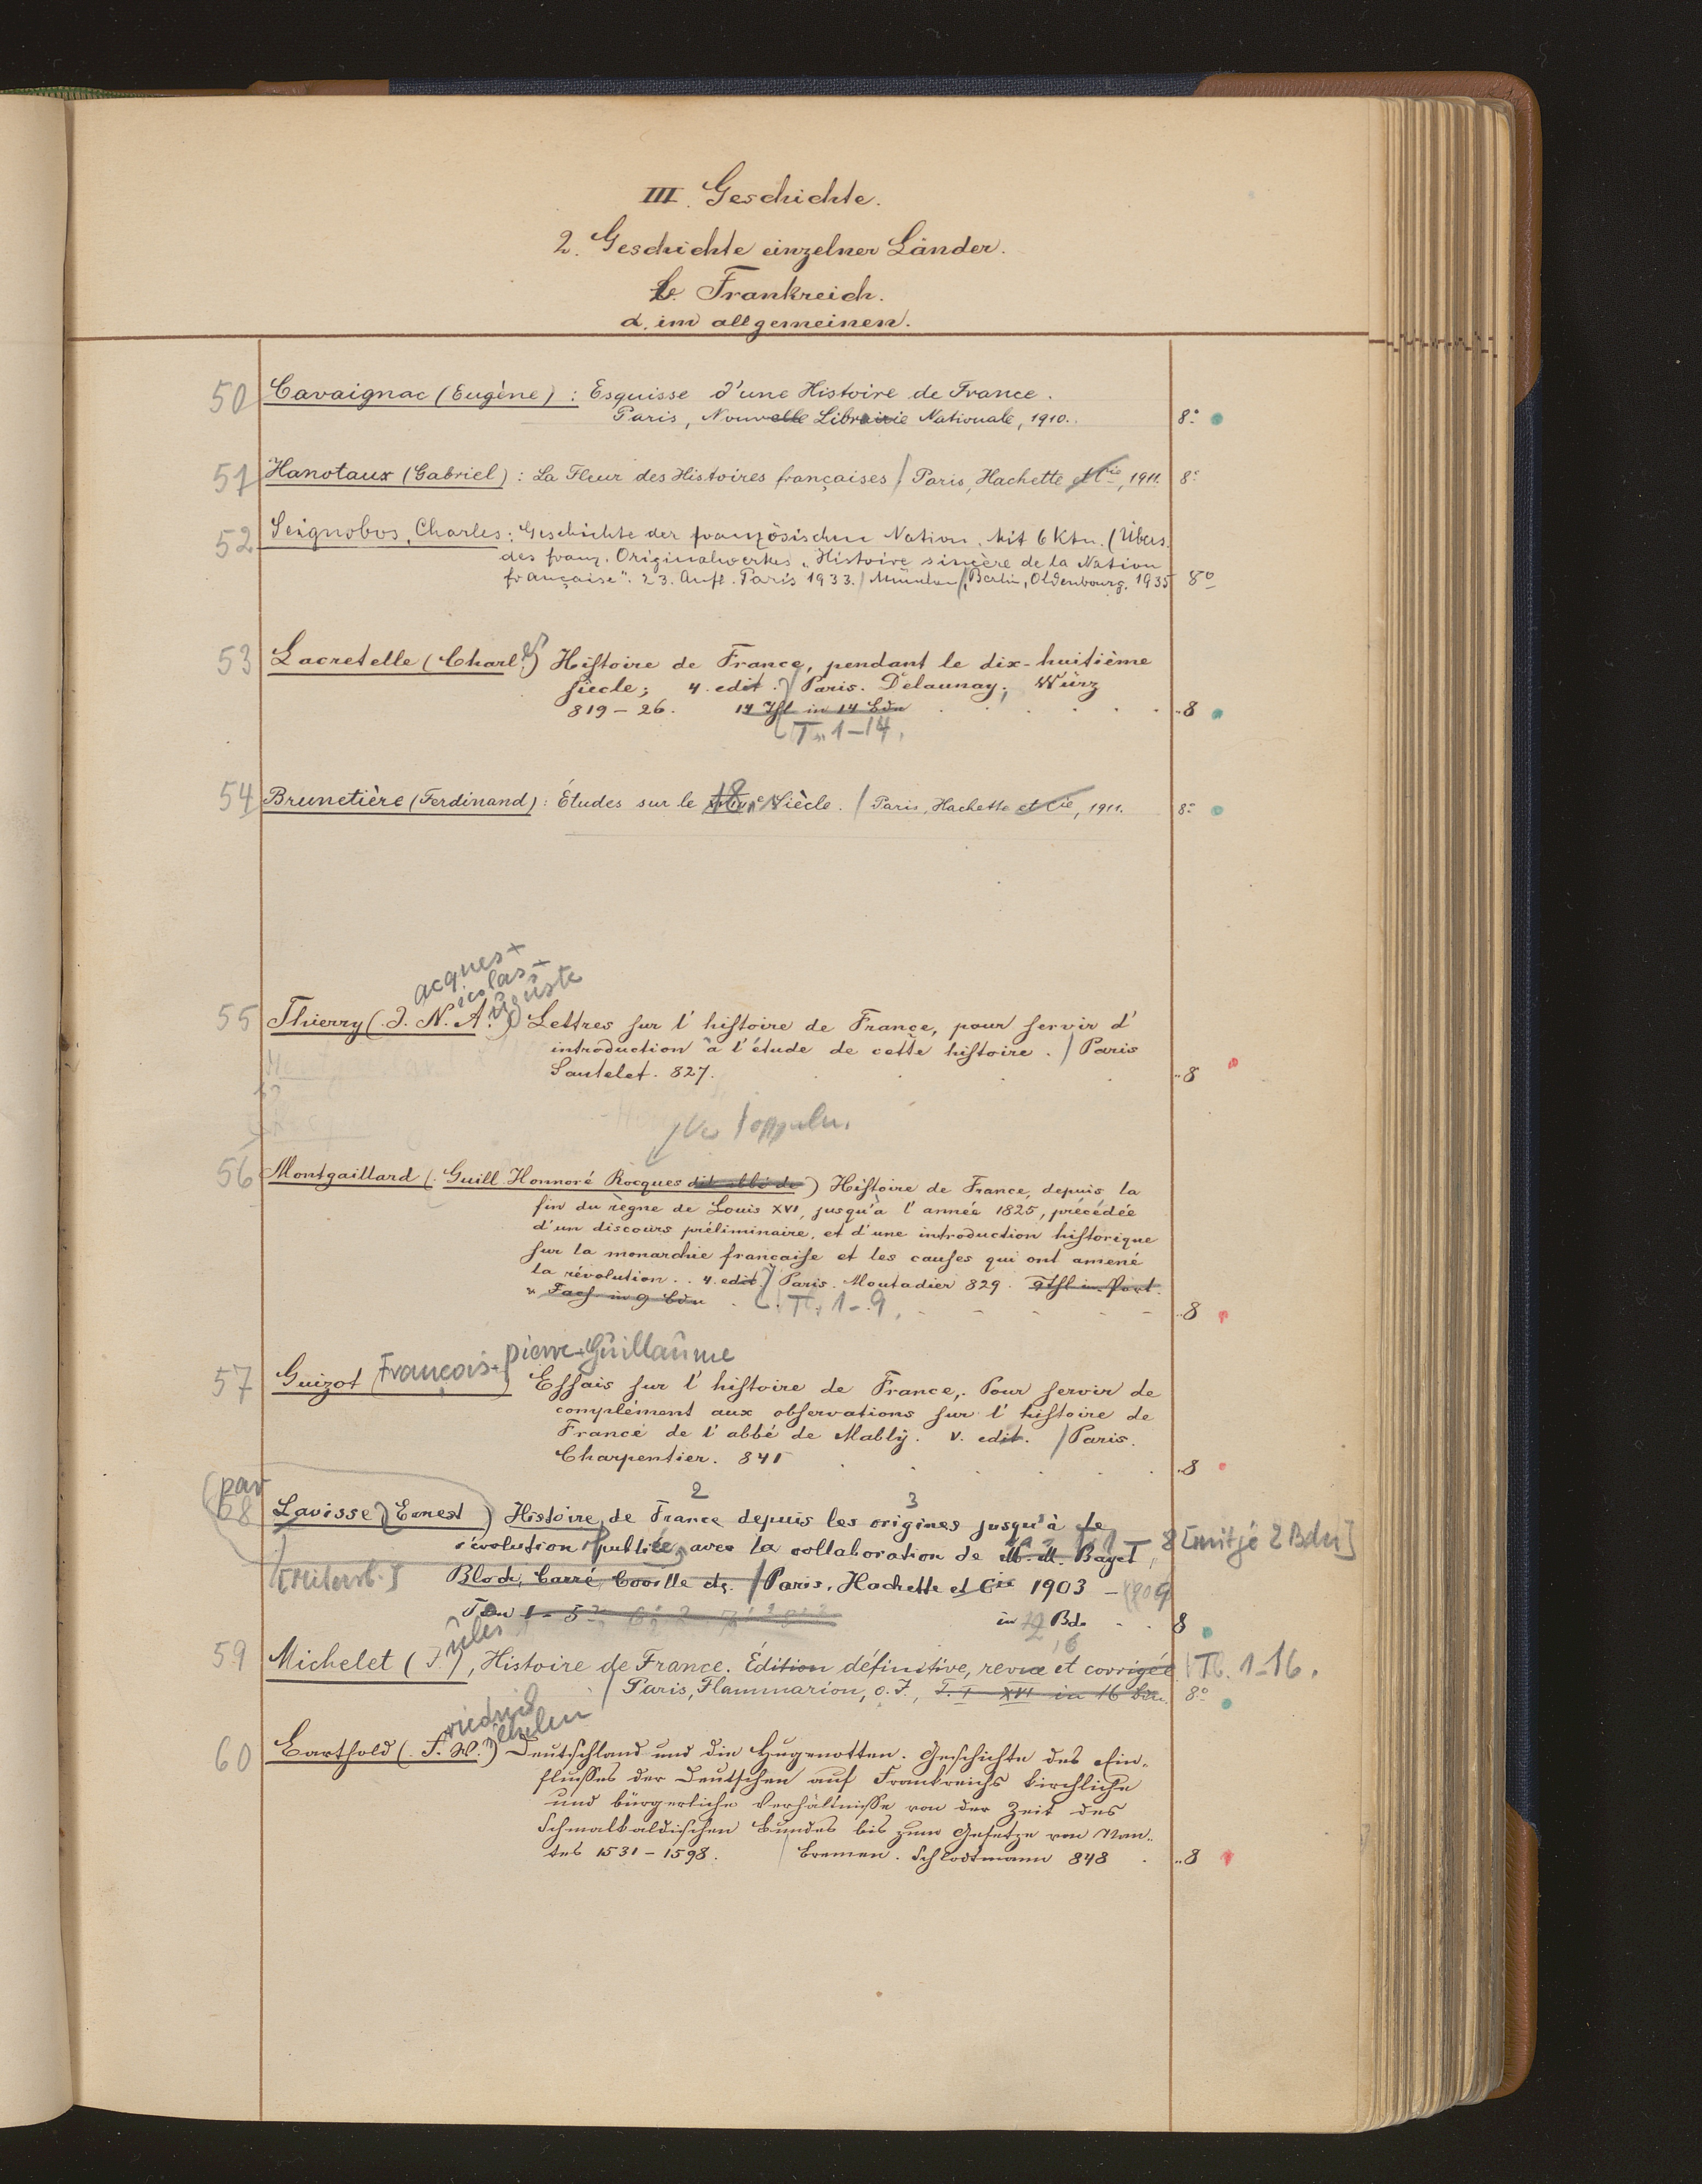 III. Geschichte.
2. Geschichte einzelner Länder.
b. Frankreich.
α. im allgemeinen.
50 Cavaignac (Eugène) : Esquisse d'une Histoire de France.
Paris, Nouvelle Librairie Nationale, 1910. 8°
51 Hanotaux (Gabriel) : La Fleur des Histoires françaises / Paris, Hachette et Cie, 1911. 8°
52 Seignobos, Charles: Geschichte der französischen Nation. Mit 6 Ktn. (Übers.
des franz. Originalwerkes „Histoire sincère de la Nation
française“. 23. Aufl. Paris 1933. / München, Berlin, Oldenbourg. 1935 8°
53 Lacretelle (Charles) Hiſtoire de France, pendant le dix-huitième
ſiecle; 4. edit. / Paris. Delaunay; Würz
819-26. 14 Thl in 14 Bdn 8
T. 1-14.
54 Brunetière (Ferdinand) : Études sur le 18e Siècle. / Paris, Hachette et Cie, 1911. 8°
acques
icolas
uguste
55 Thierry (J. N. A.) Lettres ſur l'hiſtoire de France, pour ſervir d'
introduction à l'étude de cette hiſtoire. / Paris
Sautelet. 827. 8
56 Montgaillard (Guill. Honnoré Rocques dit abbé de) Hiſtoire de France, depuis la
fin du règne de Louis XVI, jusqu'à l'année 1825, précédée
d'un discours préliminaire, et d'une introduction historique
ſur la monarchie françaiſe et les cauſes qui ont amené
la révolution. . 4. edit. / Paris. Moutadier 829. 9 Thl in Port.
u Facſ. in 9 Bdn T. 1-9. 8
pierre-Guillaume
57 Guizot (François-) Eſſais ſur l'hiſtoire de France,. Pour ſervir de
complément aux obſervations ſur l'hiſtoire de
France de l'abbé de Mably. V. edit. / Paris.
Charpentier. 841 8
(par 2 3
58 Lavisse, Ernest) Histoire de France depuis les origines jusqu'à la
révolution publiée avec la collaboration de M. M. Bayet, 8 [mit je 2 Bdn]
[Mitarb.] Bloch, Carré, Coville etc. / Paris, Hachette et Cie 1903 -
in Bd. 8
ules
59 Michelet (J.), Histoire de France. Édition définitive, revue et corrigée T. 1-16.
/ Paris, Flammarion, o. J., T. I - XVI in 16 Bdn. 8°
riedrich
ilhelm
60 Barthold (F. W.) Deutſchland und die Hugenotten. Geſchichte des Ein-
fluſſes der Deutſchen auf Frankreichs kirchliche
und bürgerliche Verhältniſſe von der Zeit des
Schmalkaldiſchen Bundes bis zum Geſetze von Nan-
tes 1531-1598. / Bremen. Schlodtmann 848 8